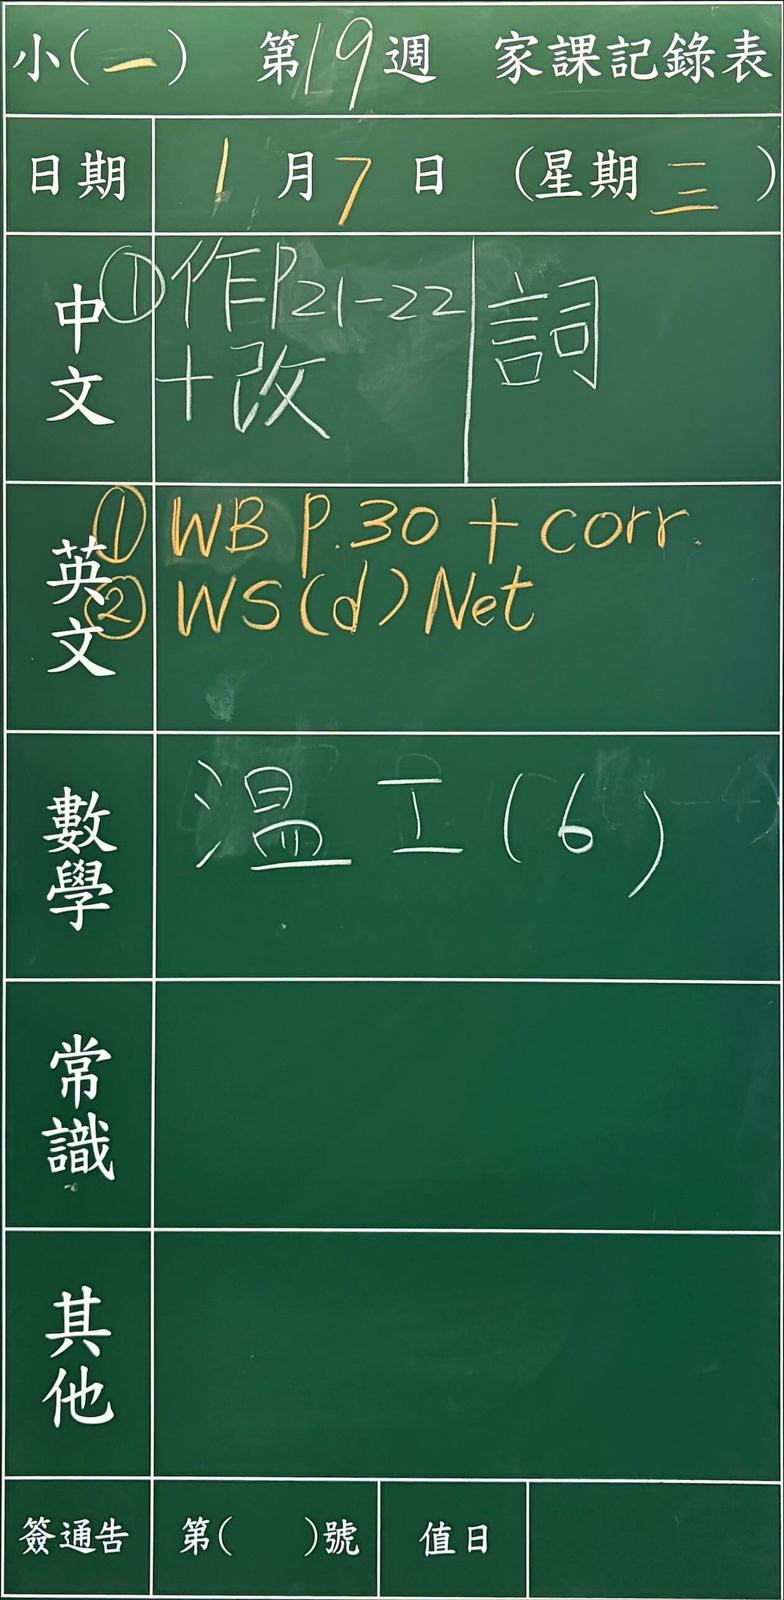 小(一) 第19週 家課記錄表
日期 1月7日 (星期三)
中文 ①作P21-22 詞
+改
英文 ①WB P.30 + corr.
②WS(d) Net
數學 温工(6)
常識
其他
簽通告 第( )號 值日